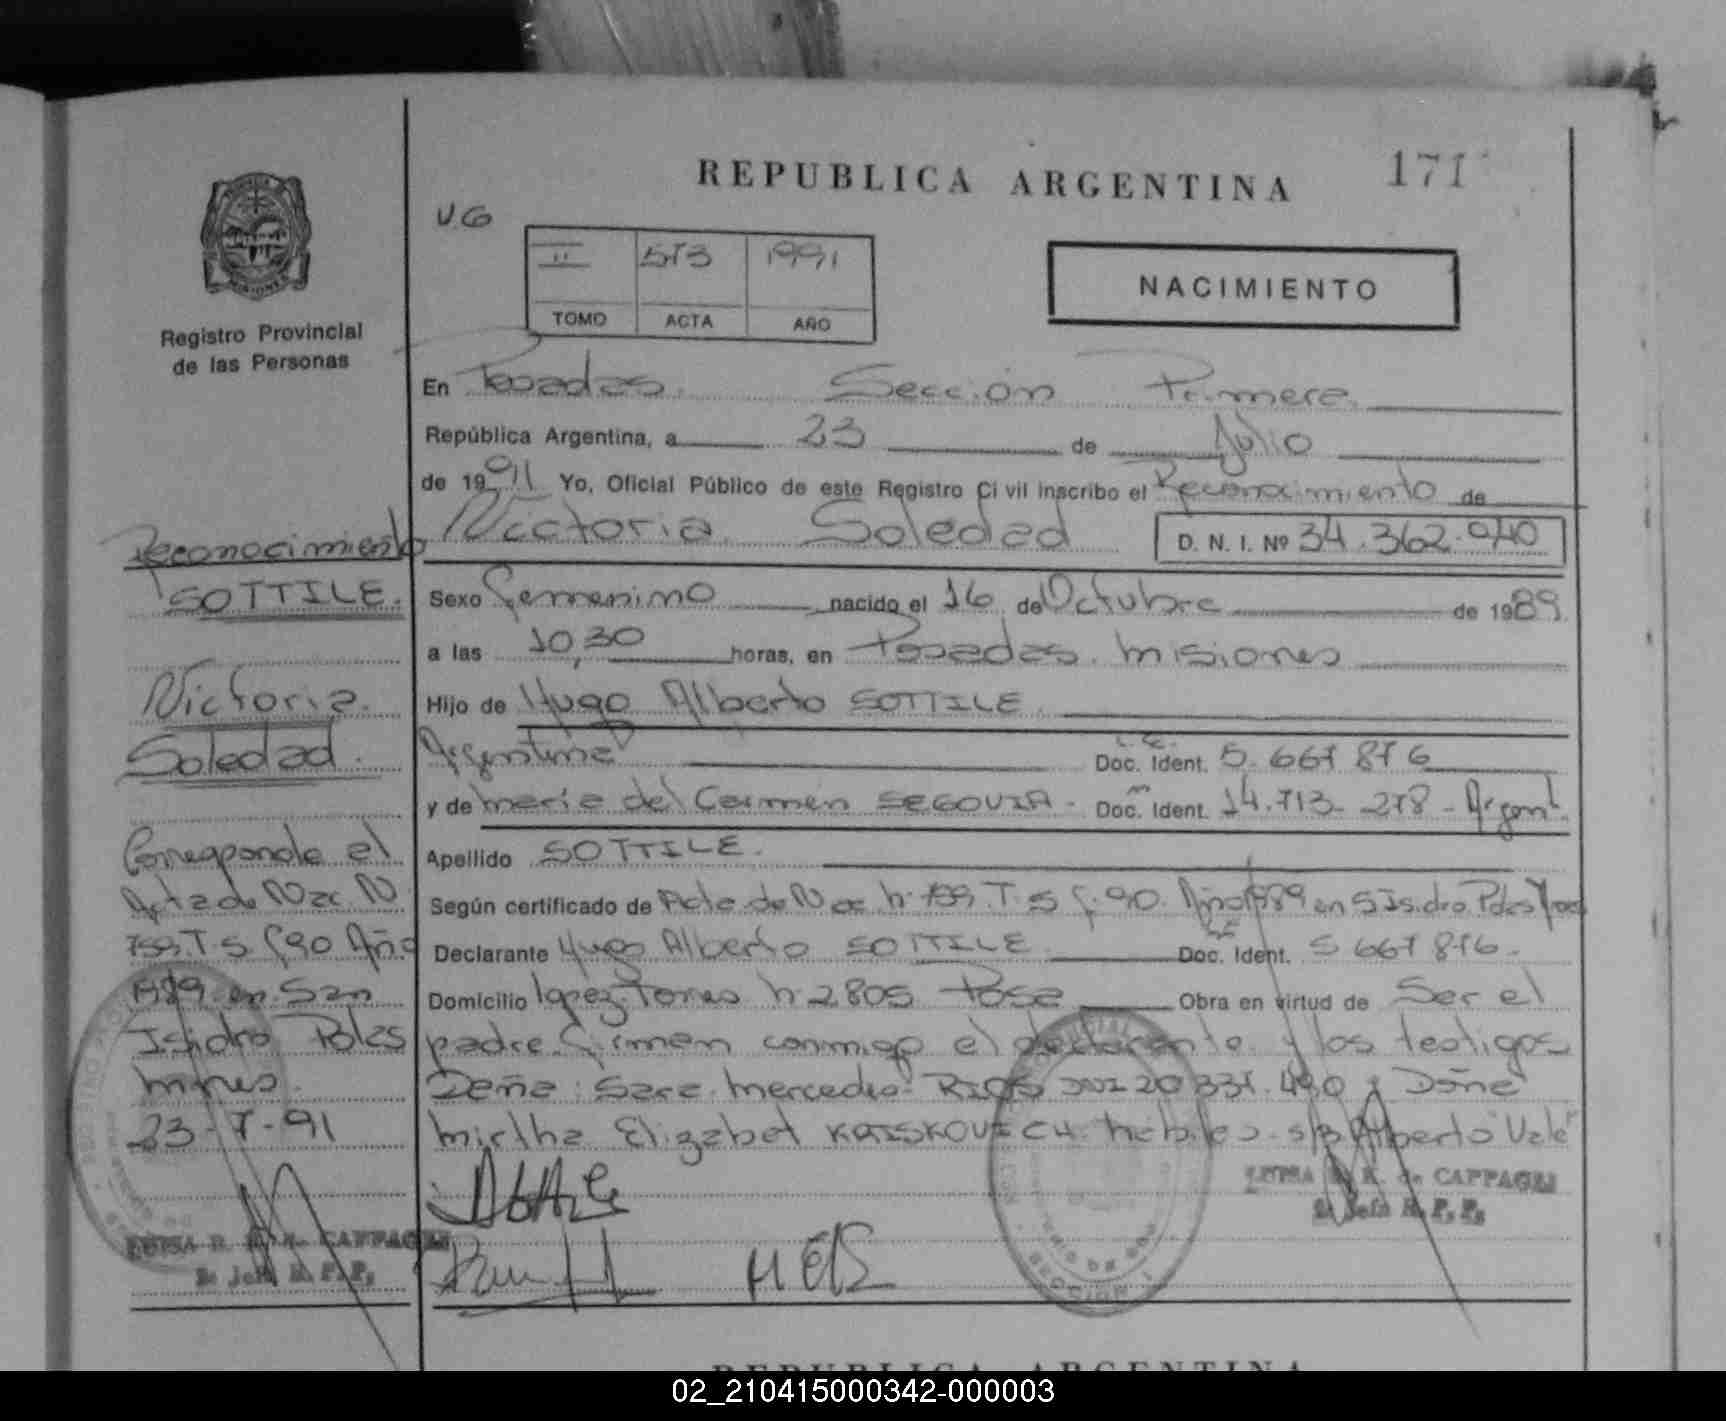 REPUBLICA ARGENTINA
171
V.G
II 573 1991
TOMO ACTA AÑO
NACIMIENTO
Registro Provincial
de las Personas
En Posadas. Sección Primera.
República Argentina, a 23 de Julio
de 1991 Yo, Oficial Público de este Registro Civil inscribo el Reconocimiento de
Victoria Soledad D. N. I. Nº 34.362.040
Sexo Femenino nacido el 16 de Octubre de 1989.
a las 10,30 horas, en Posadas. Misiones
Hijo de Hugo Alberto SOTTILE
Argentina L.E. Doc. Ident. 5.667 876
y de Maria del Carmen SEGOVIA - Doc. Ident. 14.713-278 - Argent.
Apellido SOTTILE.
Según certificado de Acta de Nac. Nº 759. T. 5 F. 90. Año 1989 en S Isidro Pdas
Declarante Hugo Alberto SOTTILE L.E Doc. Ident. 5 667 876.
Domicilio Lopez Torres Nº 2805 Posa Obra en virtud de Ser el
padre. Firman conmigo el declarante y los testigos
Doña: Sara Mercedes RIOS DNI 20 337.490 y Doña
Mirtha Elizabet KRISKOVICH. hábiles. s/b Alberto "Vale"
R. K. de CAPPAGLI
2º Jefe R. P. P.
Reconocimiento
SOTTILE.
Victoria.
Soledad.
Corresponde el
Acta de Nac. N.
759. T. 5 F 90 Año
1989 en San
Isidro Pdas
Mnes.
23-7-91
R. K. de CAPPAGLI
2º Jefe R. P. P.
REPUBLICA ARGENTINA
02_210415000342-000003